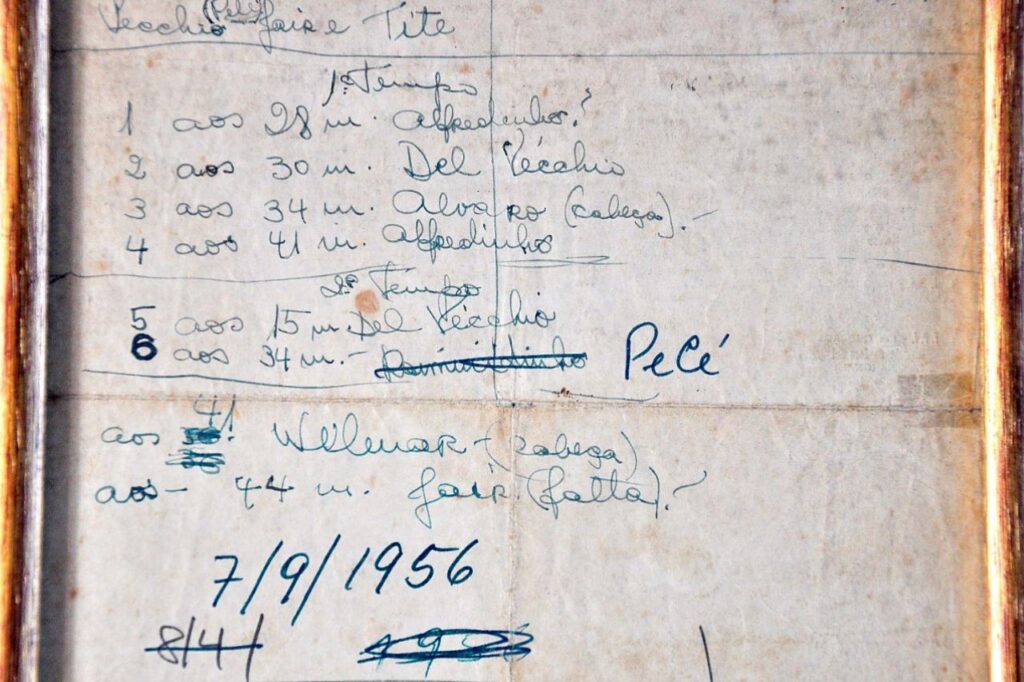 Vecchio (Pelé) Jair e Tite
1º Tempo
1 aos 28 m. Alfredinho.
2 aos 30 m. Del Vécchio
3 aos 34 m. Alvaro (cabeça). -
4 aos 41 m. Alfredinho
2º Tempo
5 aos 15 m. Del Vécchio
6 aos 34 m. - Raimundinho Pelé
aos 41! Wilmar - (cabeça)
aos - 44 m. Jair. (falta). -
7/9/1956
8/4/